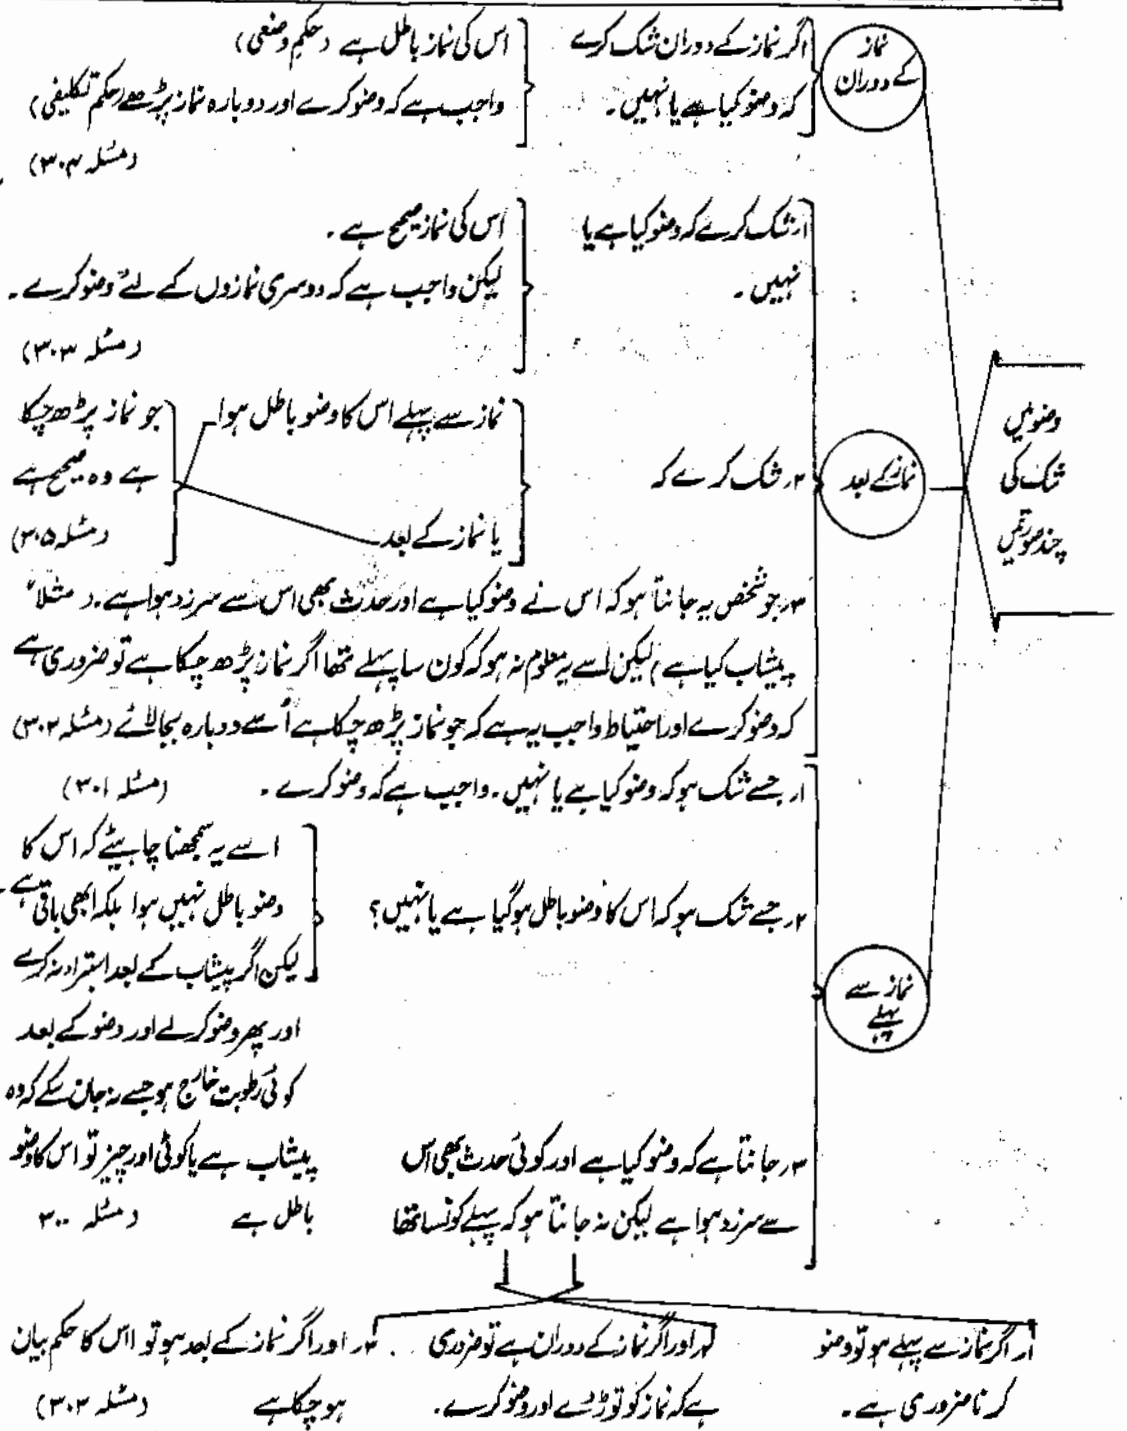 وضو میں
شک کی
چند صورتیں
نماز
کے دوران
اگر نماز کے دوران شک کرے
کہ وضو کیا ہے یا نہیں۔
اس کی نماز باطل ہے (حکم وضعی)
واجب ہے کہ وضو کرے اور دوبارہ نماز پڑھے (حکم تکلیفی)
(مسئلہ ۳۰۴)
نماز کے بعد
۱۔ شک کرے کہ وضو کیا ہے یا
نہیں۔
اس کی نماز صحیح ہے۔
لیکن واجب ہے کہ دوسری نمازوں کے لئے وضو کرے۔
(مسئلہ ۳۰۳)
۲۔ شک کرے کہ
نماز سے پہلے اس کا وضو باطل ہوا
یا نماز کے بعد
جو نماز پڑھ چکا
ہے وہ صحیح ہے
(مسئلہ ۳۰۵)
۳۔ جو شخص یہ جانتا ہو کہ اس نے وضو کیا ہے اور حدث بھی اس سے سرزد ہوا ہے۔ (مثلاً
پیشاب کیا ہے) لیکن اسے یہ معلوم نہ ہو کہ کون سا پہلے تھا اگر نماز پڑھ چکا ہے تو ضروری ہے
کہ وضو کرے اور احتیاط واجب یہ ہے کہ جو نماز پڑھ چکا ہے اُسے دوبارہ بجا لائے (مسئلہ ۳۰۲)
نماز سے
پہلے
۱۔ جسے شک ہو کہ وضو کیا ہے یا نہیں۔ واجب ہے کہ وضو کرے۔ (مسئلہ ۳۰۱)
۲۔ جسے شک ہو کہ اس کا وضو باطل ہو گیا ہے یا نہیں؟
اسے یہ سمجھنا چاہیئے کہ اس کا
وضو باطل نہیں ہوا بلکہ ابھی باقی ہے۔
لیکن اگر پیشاب کے بعد استبراء نہ کرے
اور پھر وضو کرلے اور وضو کے بعد
کوئی رطوبت خارج ہو جسے نہ جان سکے کہ وہ
پیشاب ہے یا کوئی اور چیز تو اس کا وضو
باطل ہے (مسئلہ ۳۰۰
۳۔ جانتا ہے کہ وضو کیا ہے اور کوئی حدث بھی اس
سے سرزد ہوا ہے لیکن نہ جانتا ہو کہ پہلے کونسا تھا
۱۔ اگر نماز سے پہلے ہو تو وضو
کرنا ضروری ہے۔
۲۔ اور اگر نماز کے دوران ہے تو ضروری
ہے کہ نماز کو توڑ دے اور وضو کرے۔
۳۔ اور اگر نماز کے بعد ہو تو اس کا حکم بیان
ہو چکا ہے (مسئلہ ۳۰۲)